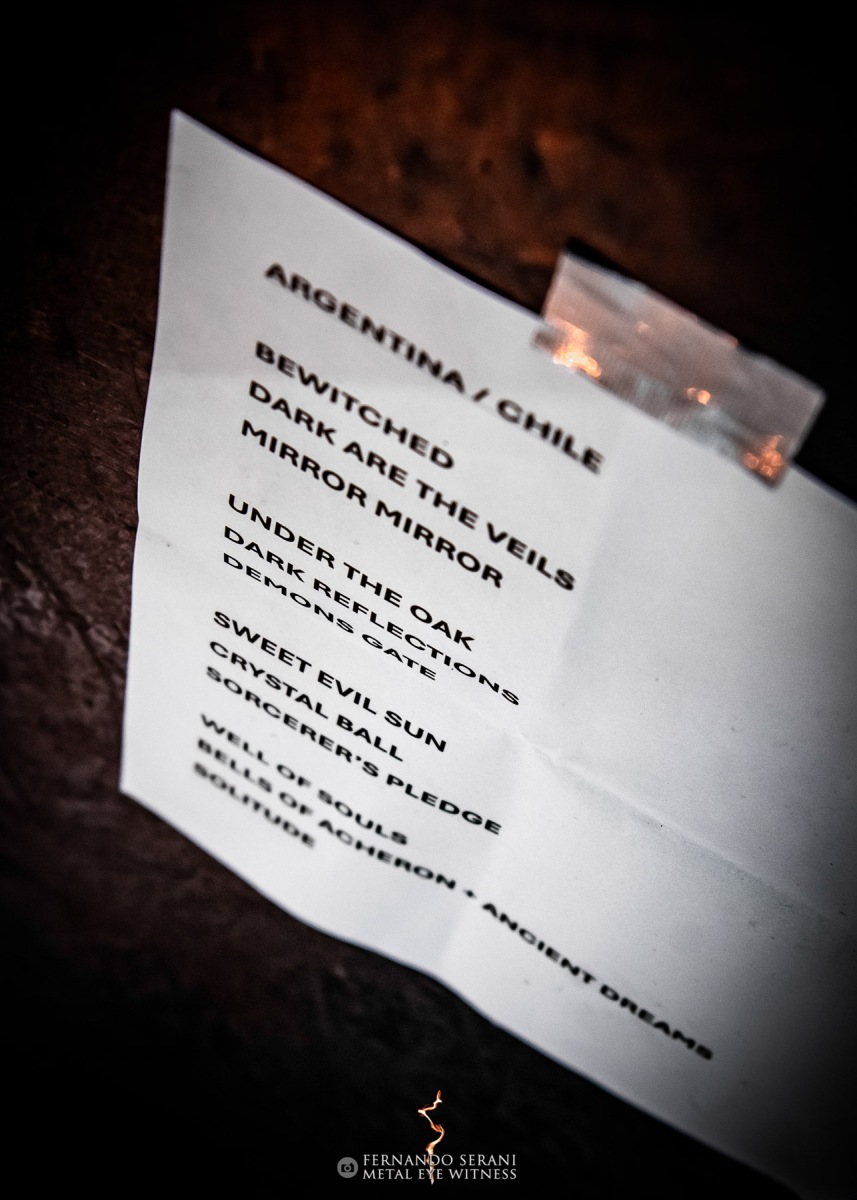 ARGENTINA / CHILE
BEWITCHED
DARK ARE THE VEILS
MIRROR MIRROR
UNDER THE OAK
DARK REFLECTIONS
DEMONS GATE
SWEET EVIL SUN
CRYSTAL BALL
SORCERER'S PLEDGE
WELL OF SOULS
BELLS OF ACHERON + ANCIENT DREAMS
SOLITUDE
FERNANDO SERANI
METAL EYE WITNESS